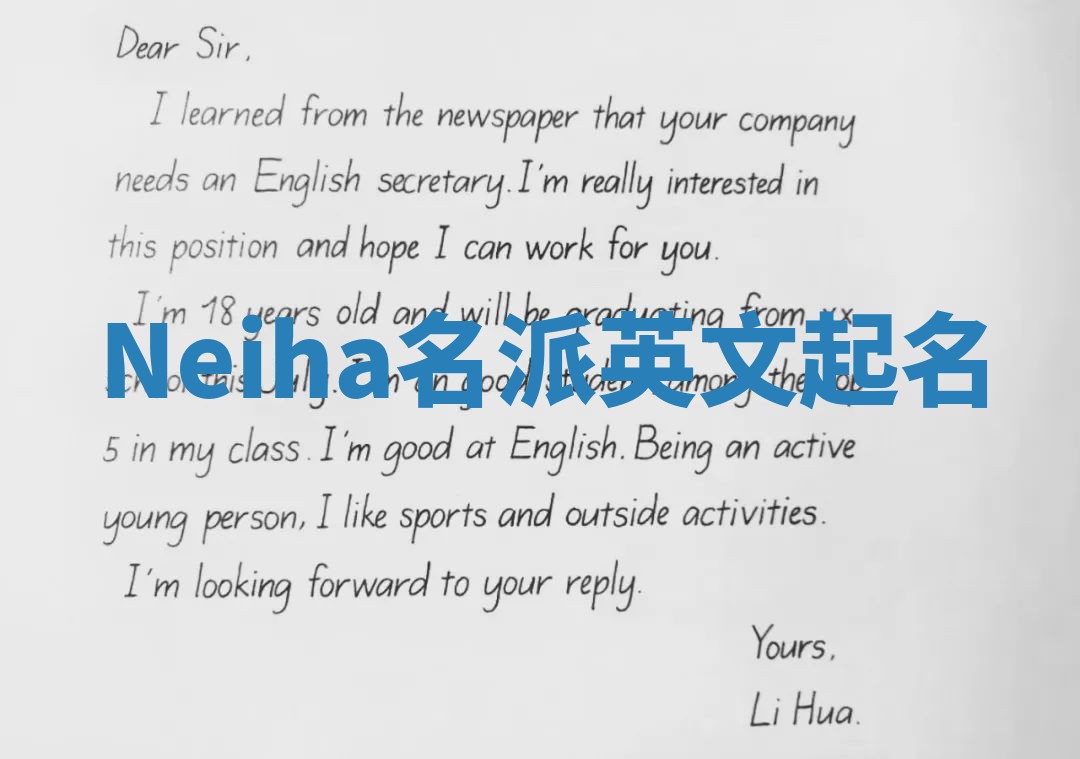 Dear Sir,
I learned from the newspaper that your company
needs an English secretary. I'm really interested in
this position and hope I can work for you.
I'm 18 years old and will be graduating from xx
Neiha名派英文起名
school this July. I'm an good student, among the top
5 in my class. I'm good at English. Being an active
young person, I like sports and outside activities.
I'm looking forward to your reply.
Yours,
Li Hua.